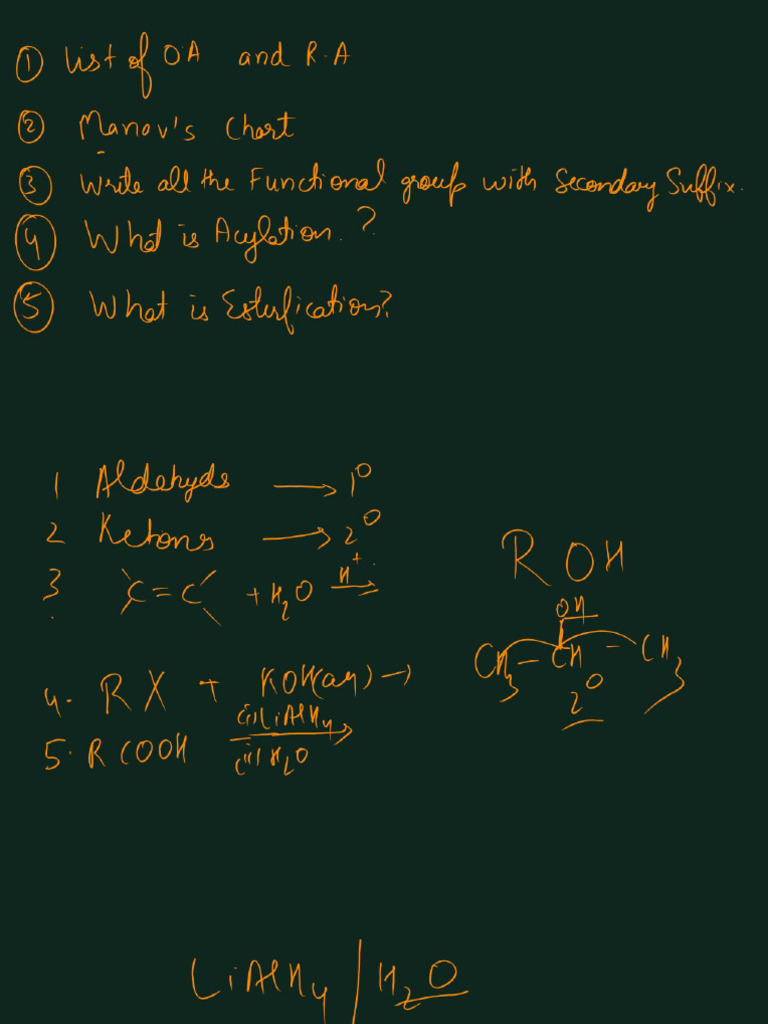 ① List of OA and R.A
② Manav's Chart
③ Write all the Functional group with Secondary Suffix.
④ What is Acylation.?
⑤ What is Esterfication?
1 Aldehyde → 1°
2 Ketons → 2°
3 C=C + H2O H+ →
4. RX + KOH(aq) →
5. RCOOH (i) LiAlH4 (ii) H2O →
ROH
OH
CH3 - CH - CH3
2°
LiAlH4 / H2O